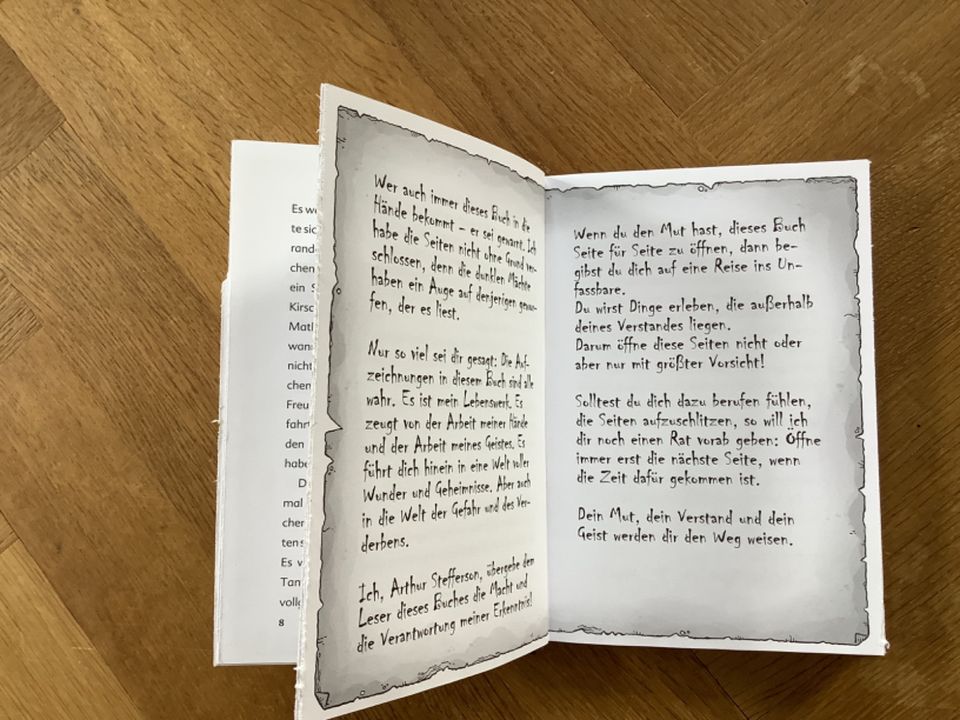 Es
te sic
rand
chen
ein S
Kirsc
Mat
wan
nicht
chen
Freu
fahrt
den
habe
D
mal
cher
ten s
Es v
Tan
voll
8
Wer auch immer dieses Buch in die
Hände bekommt – er sei gewarnt. Ich
habe die Seiten nicht ohne Grund ver-
schlossen, denn die dunklen Mächte
haben ein Auge auf denjenigen gewor-
fen, der es liest.
Nur so viel sei dir gesagt: Die Auf-
zeichnungen in diesem Buch sind alle
wahr. Es ist mein Lebenswerk. Es
zeugt von der Arbeit meiner Hände
und der Arbeit meines Geistes. Es
führt dich hinein in eine Welt voller
Wunder und Geheimnisse. Aber auch
in die Welt der Gefahr und des Ver-
derbens.
Ich, Arthur Stefferson, übergebe dem
Leser dieses Buches die Macht und
die Verantwortung meiner Erkenntnis!
Wenn du den Mut hast, dieses Buch
Seite für Seite zu öffnen, dann be-
gibst du dich auf eine Reise ins Un-
fassbare.
Du wirst Dinge erleben, die außerhalb
deines Verstandes liegen.
Darum öffne diese Seiten nicht oder
aber nur mit größter Vorsicht!
Solltest du dich dazu berufen fühlen,
die Seiten aufzuschlitzen, so will ich
dir noch einen Rat vorab geben: Öffne
immer erst die nächste Seite, wenn
die Zeit dafür gekommen ist.
Dein Mut, dein Verstand und dein
Geist werden dir den Weg weisen.